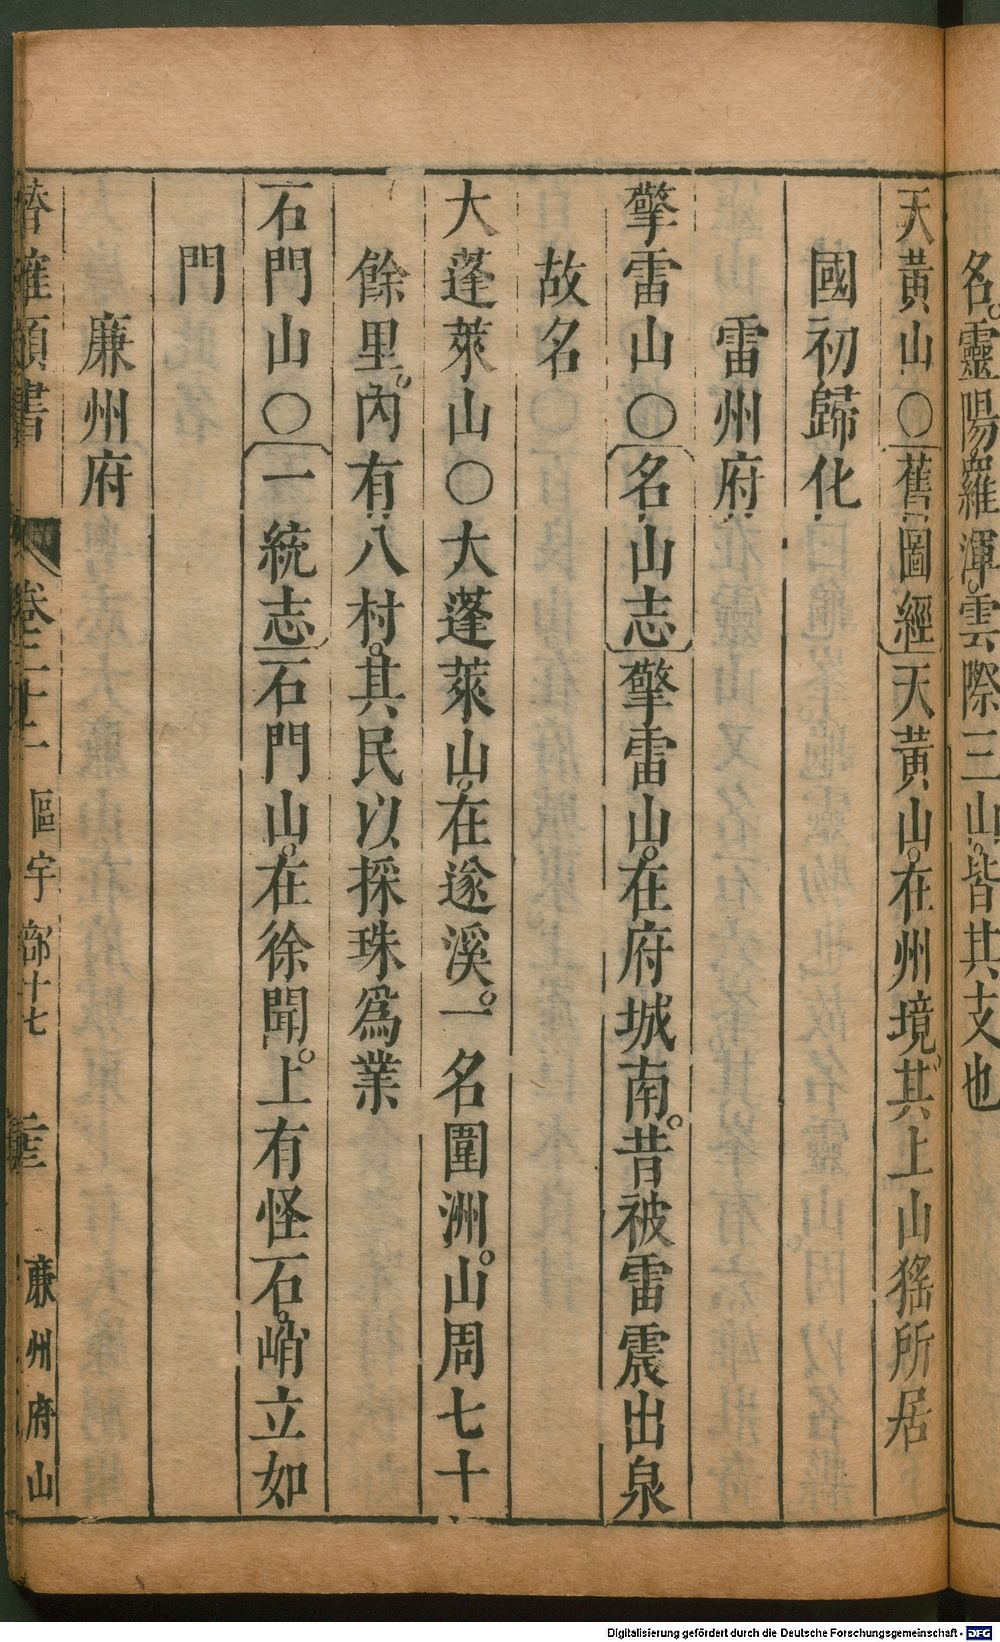 名靈陽羅渾雲際三山皆其支也
天黃山〇舊圖經天黃山在州境其上山猺所居
國初歸化
雷州府
擎雷山〇名山志擎雷山在府城南昔被雷震出泉
故名
大蓬萊山〇大蓬萊山在遂溪一名圍洲山周七十
餘里內有八村其民以採珠爲業
石門山〇一統志石門山在徐聞上有怪石峭立如
門
廉州府
潛確類書 卷二十二 區宇部十七 廉州府山
Digitalisierung gefördert durch die Deutsche Forschungsgemeinschaft - DFG